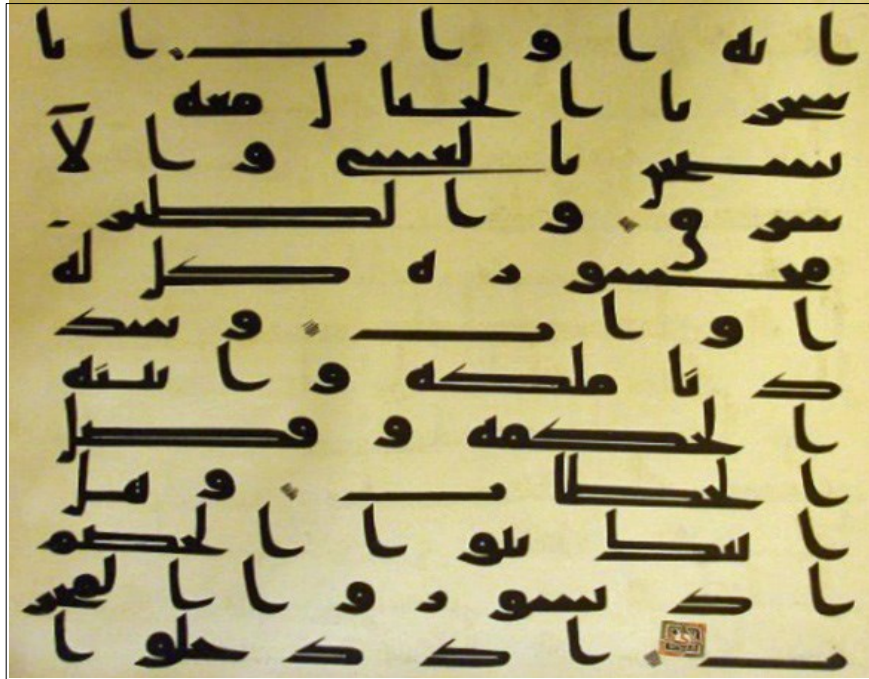 انه اواب انا
سخرنا الجبال معه
يسبحن بالعشي والا
شرق والطير
محشورة كل له
اواب وشد
دنا ملكه واتينه
الحكمة وفصل
الخطاب وهل
اتيك نبؤا الخصم
اذ تسوروا المحر
ب اذ دخلوا